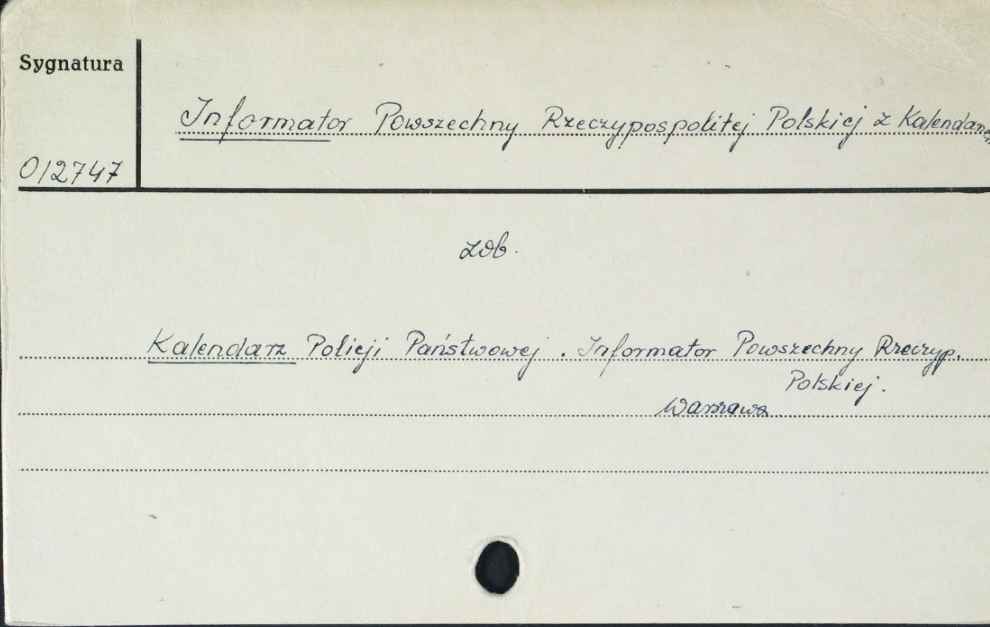 Sygnatura
Informator Powszechny Rzeczypospolitej Polskiej z Kalendarzem
012747
zob.
Kalendarz Policji Państwowej. Informator Powszechny Rzeczyp.
Polskiej.
Warszawa